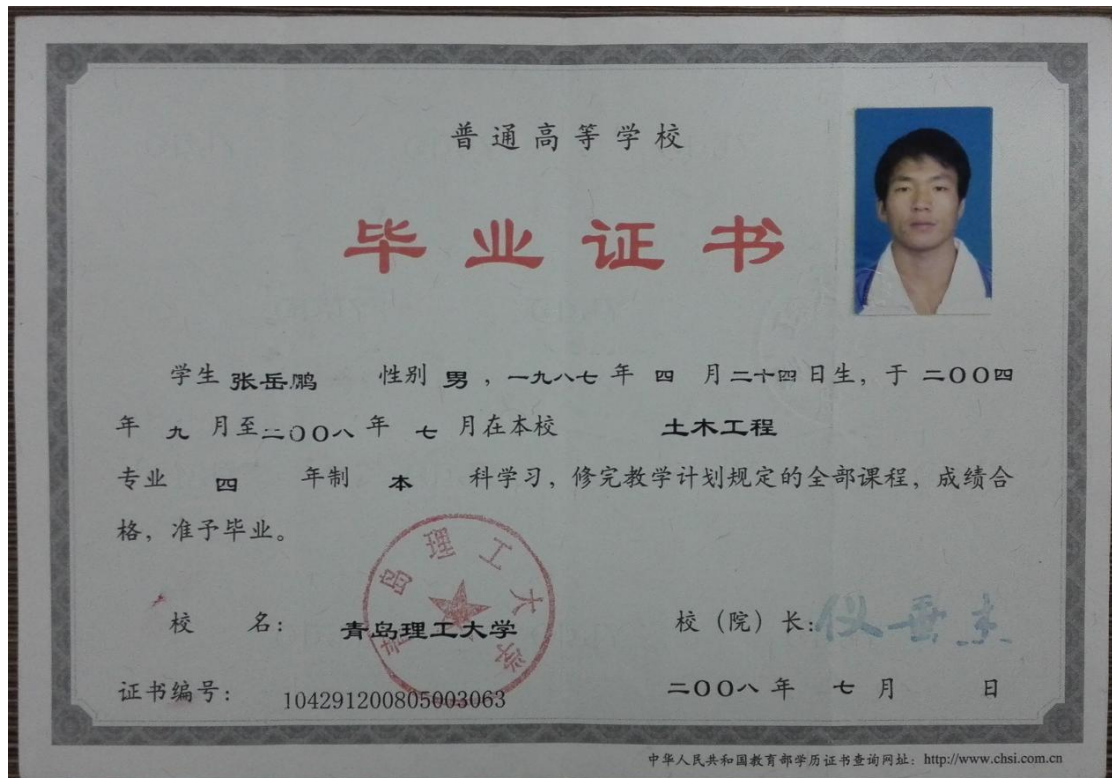 普通高等学校
毕业证书
学生 张岳鹏 性别 男 ，一九八七 年 四 月 二十四 日生，于 二00四
年 九 月至 二00八 年 七 月在本校 土木工程
专业 四 年制 本 科学习，修完教学计划规定的全部课程，成绩合
格，准予毕业。
青岛理工大学
校 名： 青岛理工大学 校（院）长：仪垂杰
证书编号： 104291200805003063 二00八 年 七 月 日
中华人民共和国教育部学历证书查询网址：http://www.chsi.com.cn